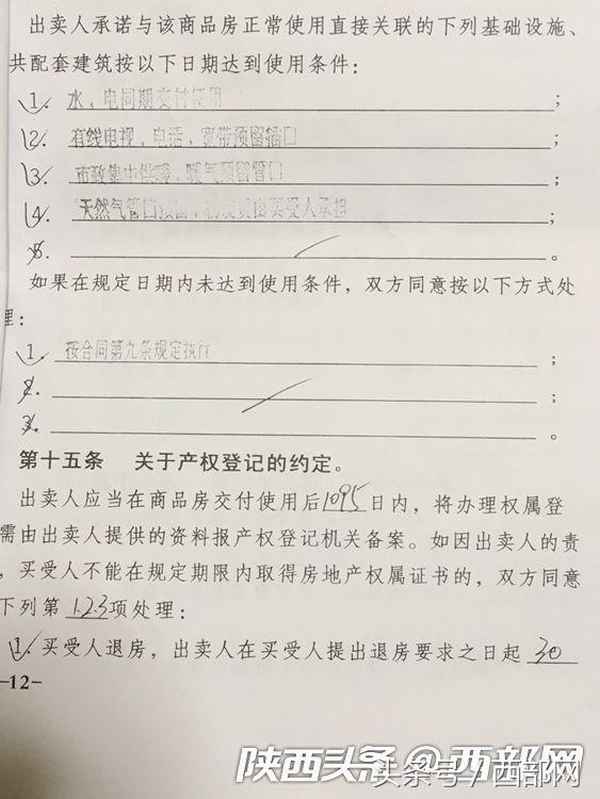 出卖人承诺与该商品房正常使用直接关联的下列基础设施、
共配套建筑按以下日期达到使用条件：
1. 水，电同期交付使用；
2. 有线电视，电话，宽带预留插口；
3. 市政集中供暖，暖气预留管口；
4. 天然气管口预留，初装费由买受人承担；
5. 。
如果在规定日期内未达到使用条件，双方同意按以下方式处
理：
1. 按合同第九条规定执行；
2. ；
3. 。
第十五条 关于产权登记的约定。
出卖人应当在商品房交付使用后1095日内，将办理权属登
需由出卖人提供的资料报产权登记机关备案。如因出卖人的责
，买受人不能在规定期限内取得房地产权属证书的，双方同意
下列第1.2.3项处理：
1. 买受人退房，出卖人在买受人提出退房要求之日起 30
-12-
陕西头条@西部网
头条号/西部网